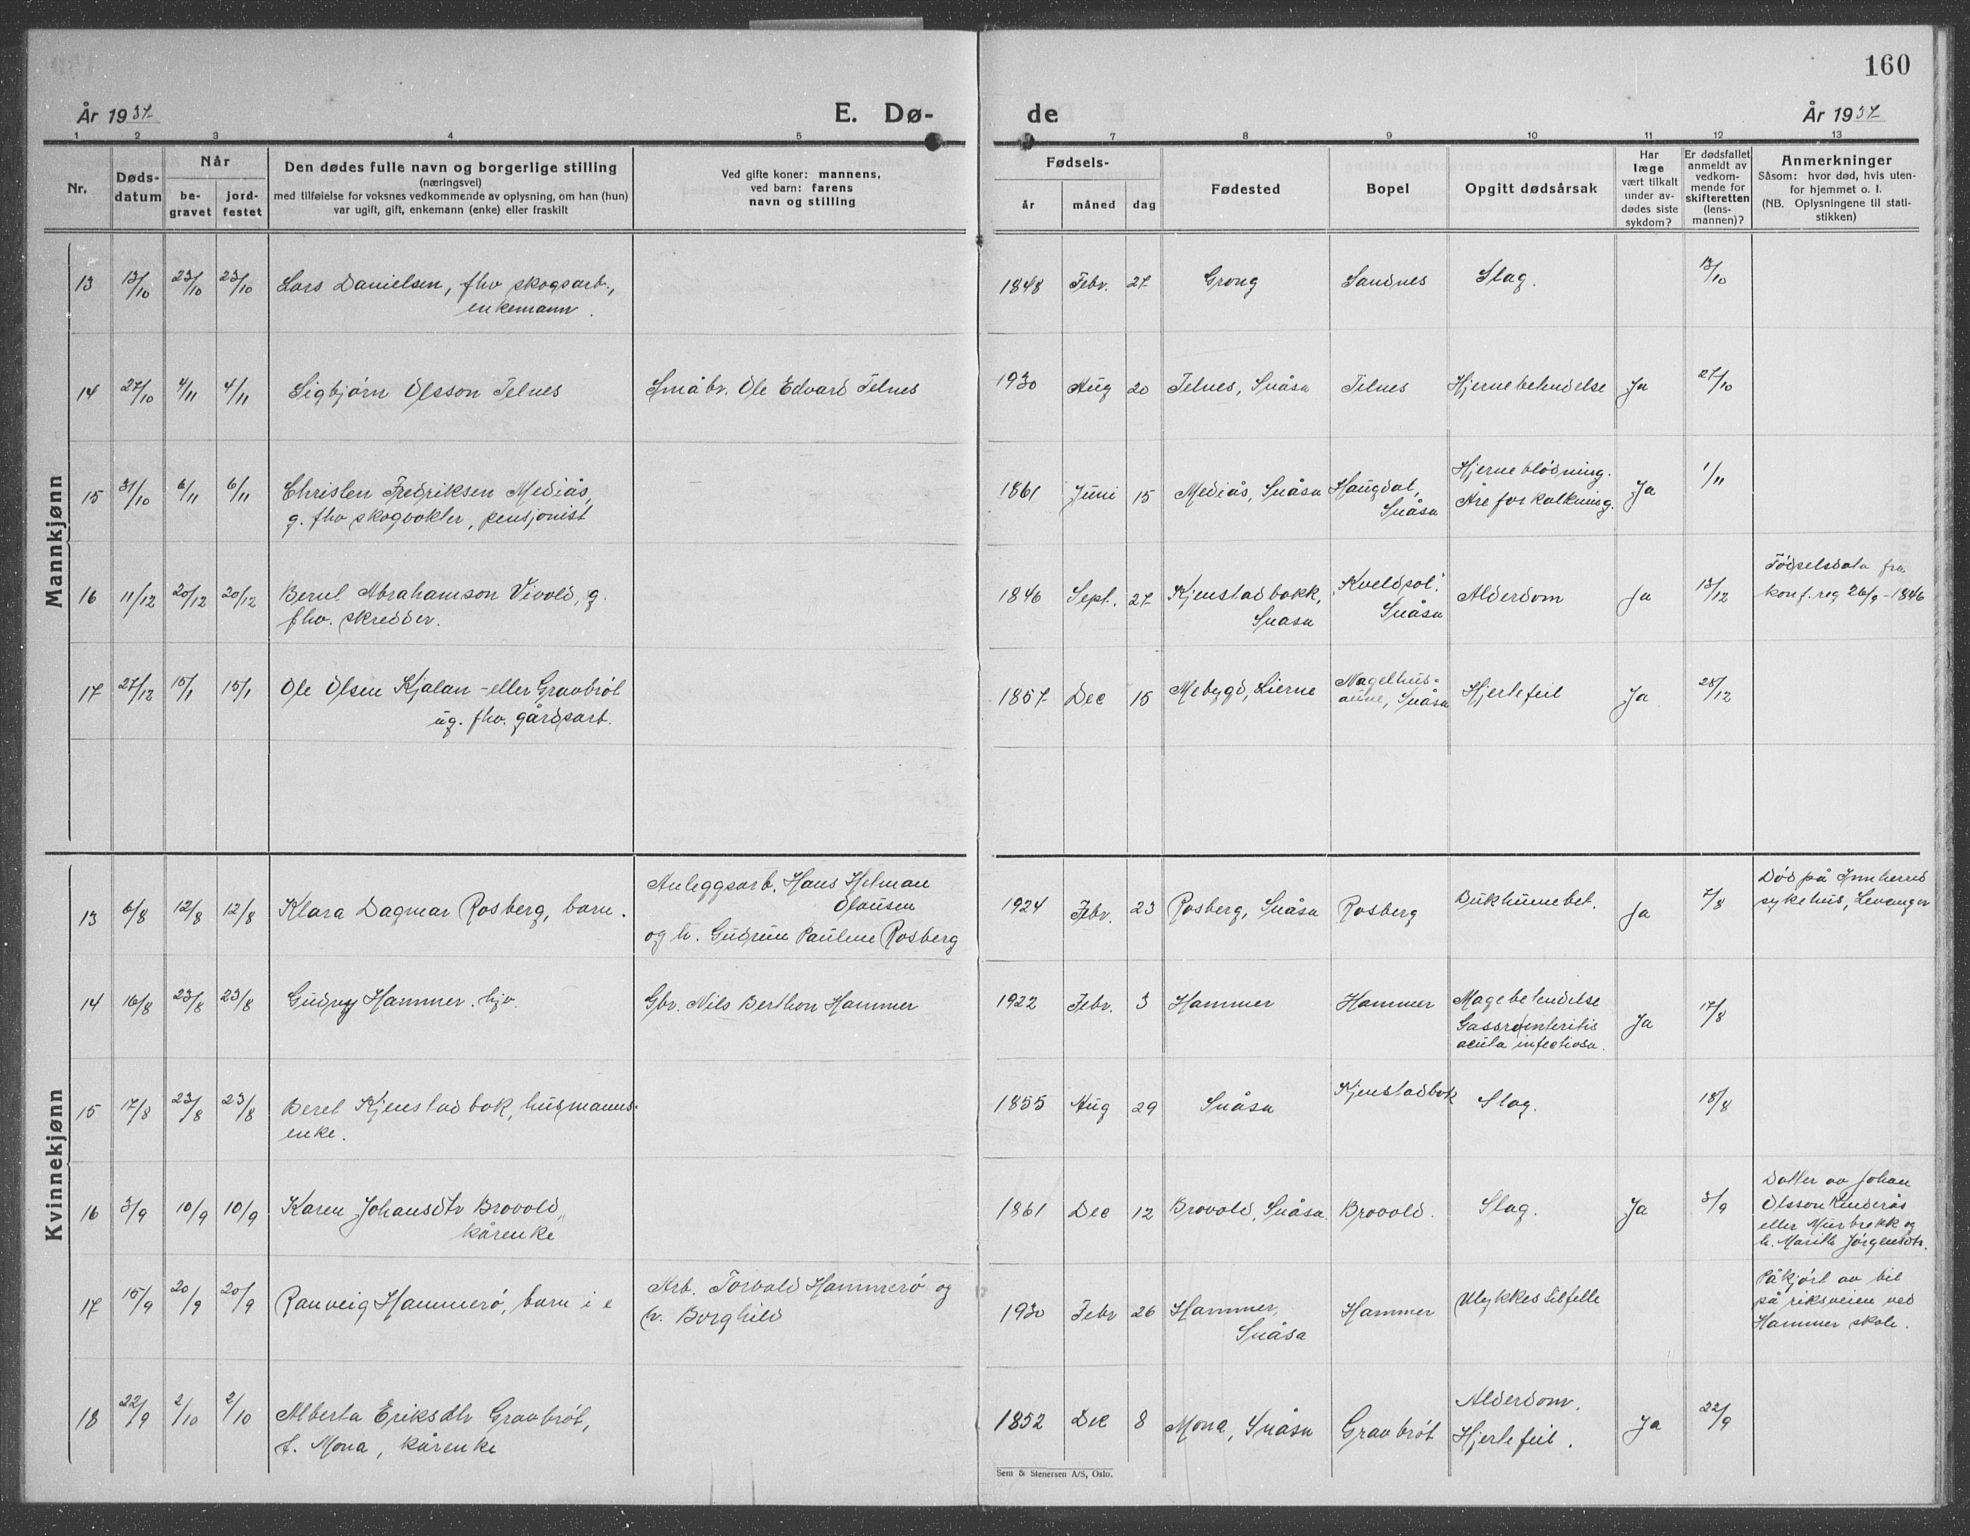 160
År 1937 E. Dø- de År 1937
1 2 3 4 5 7 8 9 10 11 12 13
Nr.
Døds-
datum
Når
be-
gravet
jord-
festet
Den dødes fulle navn og borgerlige stilling
(næringsvei)
med tilføielse for voksnes vedkommende av oplysning, om han (hun)
var ugift, gift, enkemann (enke) eller fraskilt
Ved gifte koner: mannens,
ved barn: farens
navn og stilling
Fødsels-
år måned dag
Fødested
Bopel
Opgitt dødsårsak
Har
læge
vært tilkalt
under av-
dødes siste
sykdom?
Er dødsfallet
anmeldt av
vedkom-
mende for
skifteretten
(lens-
mannen)?
Anmerkninger
Såsom: hvor død, hvis uten-
for hjemmet o. l.
(NB. Oplysningene til stati-
stikken)
Mannkjønn
13 13/10 23/10 23/10 Lars Danielsen, fhv skogsarb., 1848 Febr. 27 Grong Sandnes Slag. 13/10
enkemann.
14 27/10 4/11 4/11 Sigbjørn Olsson Telnes Småbr. Ole Edvard Telnes 1930 Aug 20 Telnes, Snåsa Telnes Hjernebetendelse Ja 27/10
15 31/10 6/11 6/11 Christen Fredriksen Mediås, 1861 Juni 15 Mediås, Snåsa Haugdal, Hjerneblødning. Ja 1/11
g. fhv skogvokter, pensjonist Snåsa Åreforkalkning.
16 11/12 20/12 20/12 Bernt Abrahamson Vivold, g. 1846 Sept. 27 Kjenstadbakk, "Kveldsol" Alderdom Ja 13/12 Fødselsdata fra
fhv. skredder. Snåsa Snåsa konf.reg 26/9-1846
17 27/12 15/1 15/1 Ole Olsen Kjalan - eller Gravbrøt 1857 Dec 15 Mebygd, Lierne Nagelhus- Hjertefeil Ja 28/12
ug. fhv. gårdsarb. aune, Snåsa
Kvinnekjønn
13 6/8 12/8 12/8 Klara Dagmar Rosberg, barn. Anleggsarb. Hans Helman 1924 Febr. 23 Rosberg, Snåsa Rosberg Bukhinnebet. Ja 7/8 Død på Innherred
Olausen sykehus, Levanger
og h. Gudrun Pauline Rosberg
14 16/8 23/8 23/8 Gudny Hammer. hjv. Gbr. Nils Berthon Hammer 1922 Febr. 3 Hammer Hammer Magebetendelse Ja 17/8
Gassroenteritis
acuta infectiosa.
15 17/8 23/8 23/8 Beret Kjenstadbak, husmanns- 1855 Aug 29 Snåsa Kjenstadbak Slag. 18/8
enke.
16 3/9 10/9 10/9 Karen Johansdtr Brovold, 1861 Dec 12 Brovold, Snåsa Brovold. Slag. Ja 3/9 Datter av Johan
kårenke Olsson Kinderås
eller Murbrekk og
h. Marith Jørgensdtr.
17 15/9 20/9 20/9 Ranveig Hammerø, barn i e Arb. Torvald Hammerø og 1930 Febr 26 Hammer, Hammer Ulykkestilfelle Påkjørt av bil
h. Borghild Snåsa på riksveien ved
Hammer skole.
18 22/9 2/10 2/10 Alberta Eriksdtr Gravbrøt, 1852 Dec 8 Mona, Snåsa Gravbrøt Alderdom. Ja 22/9
f. Mona, kårenke Hjertefeil.
Sem & Stenersen A/S, Oslo.